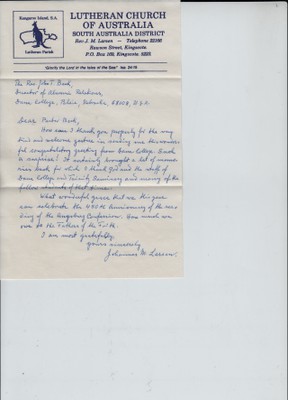 Kangaroo Island, S.A.
Lutheran Parish
LUTHERAN CHURCH
OF AUSTRALIA
SOUTH AUSTRALIA DISTRICT
Rev J. M. Larsen – Telephone 22190
Esmore Street, Kingscote.
P.O. Box 169, Kingscote. 5223.
"Glorify the Lord in the Isles of the Sea" Isa 24:15
The Rev John T. Beck,
Director of Alumni Relations,
Dana College, Blair, Nebraska 68008, U.S.A.
Dear Pastor Beck,
How can I thank you properly for the very
kind and welcome gesture in sending me this wonder-
ful congratulatory greeting from Dana College. Such
a surprise! It certainly brought a lot of memor-
ies back for which I thank God and the staff of
Dana College and Trinity Seminary and many of the
fellow students of that time.
What wonderful grace that we this year
can celebrate the 450th Anniversary of the
of the Augsburg Confession. How much we
owe to the Fathers of the Faith.
I am most gratefully,
yours sincerely
Johannes M. Larsen.